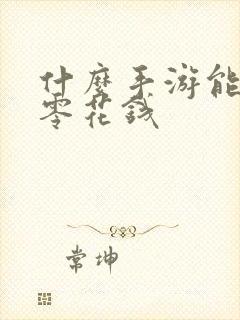 什麼手游能
零花錢
常坤